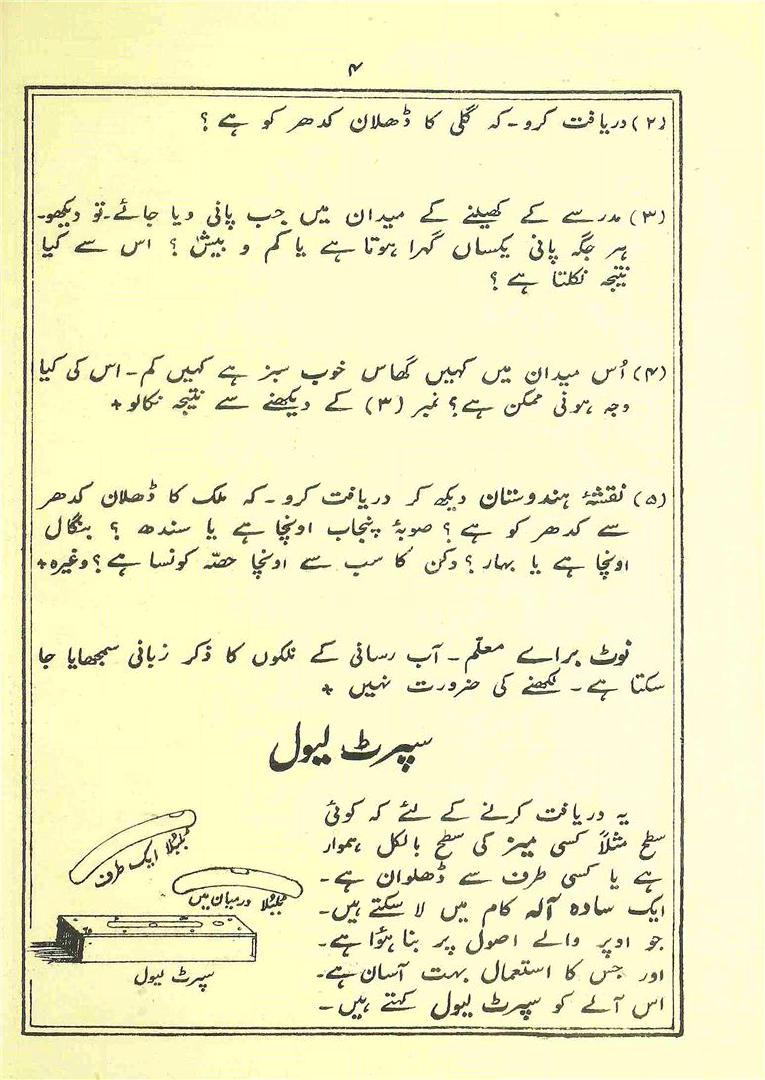 ۴
(۲) دریافت کرو۔ کہ گلی کا ڈھلان کدھر کو ہے؟
(۳) مدرسے کے کھیلنے کے میدان میں جب پانی دیا جائے۔ تو دیکھو۔
ہر جگہ پانی یکساں گہرا ہوتا ہے یا کم و بیش؟ اس سے کیا
نتیجہ نکلتا ہے؟
(۴) اُس میدان میں کہیں گھاس خوب سبز ہے کہیں کم۔ اس کی کیا
وجہ ہونی ممکن ہے؟ نمبر (۳) کے دیکھنے سے نتیجہ نکالو +
(۵) نقشۂ ہندوستان دیکھ کر دریافت کرو۔ کہ ملک کا ڈھلان کدھر
سے کدھر کو ہے؟ صوبۂ پنجاب اونچا ہے یا سندھ؟ بنگال
اونچا ہے یا بہار؟ دکن کا سب سے اونچا حصّہ کونسا ہے؟ وغیرہ +
نوٹ براے معلّم۔ آب رسانی کے نلکوں کا ذکر زبانی سمجھایا جا
سکتا ہے۔ لکھنے کی ضرورت نہیں +
سپرٹ لیول
یہ دریافت کرنے کے لئے کہ کوئی
سطح مثلاً کسی میز کی سطح بالکل ہموار
ہے یا کسی طرف سے ڈھلوان ہے۔
ایک سادہ آلہ کام میں لا سکتے ہیں۔
جو اوپر والے اصول پر بنا ہؤا ہے۔
اور جس کا استعمال بہت آسان ہے۔
اس آلے کو سپرٹ لیول کہتے ہیں۔
بُلبُلا ایک طرف
بُلبُلا درمیان میں
سپرٹ لیول